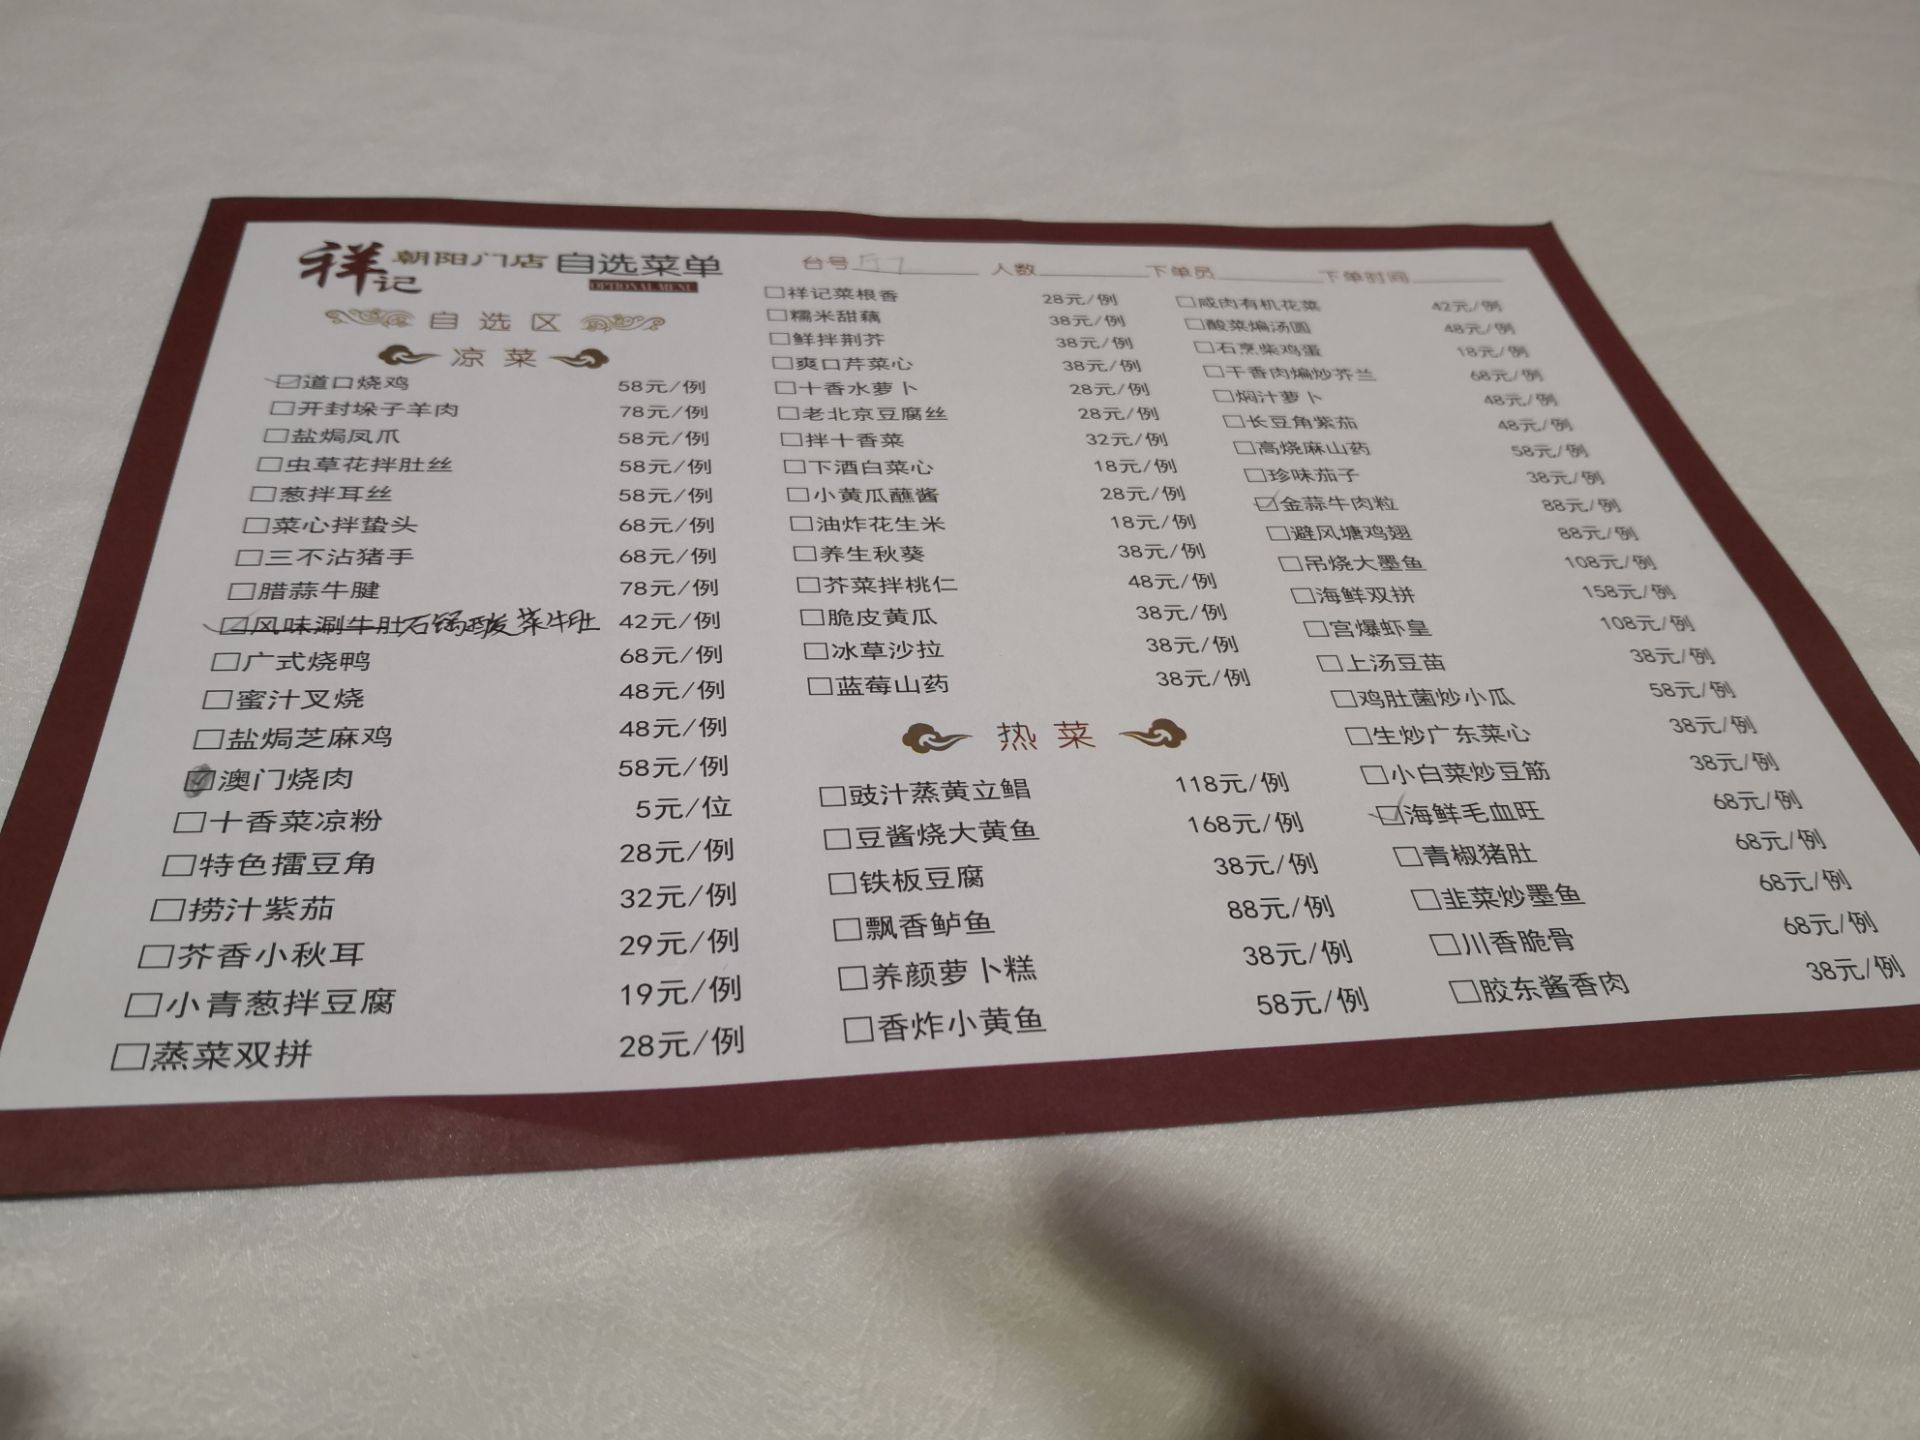 祥记 朝阳门店 自选菜单
OPTIONAL MENU
自选区
凉菜
道口烧鸡 58元/例
开封垛子羊肉 78元/例
盐焗凤爪 58元/例
虫草花拌肚丝 58元/例
葱拌耳丝 58元/例
菜心拌蛰头 68元/例
三不沾猪手 68元/例
腊蒜牛腱 78元/例
风味涮牛肚 石锅酸菜牛肚 42元/例
广式烧鸭 68元/例
蜜汁叉烧 48元/例
盐焗芝麻鸡 48元/例
澳门烧肉 58元/例
十香菜凉粉 5元/位
特色擂豆角 28元/例
捞汁紫茄 32元/例
芥香小秋耳 29元/例
小青葱拌豆腐 19元/例
蒸菜双拼 28元/例
台号 人数 下单员 下单时间
祥记菜根香 28元/例
糯米甜藕 38元/例
鲜拌荆芥 38元/例
爽口芹菜心 38元/例
十香水萝卜 28元/例
老北京豆腐丝 28元/例
拌十香菜 32元/例
下酒白菜心 18元/例
小黄瓜蘸酱 28元/例
油炸花生米 18元/例
养生秋葵 38元/例
芥菜拌桃仁 48元/例
脆皮黄瓜 38元/例
冰草沙拉 38元/例
蓝莓山药 38元/例
热菜
豉汁蒸黄立鲳 118元/例
豆酱烧大黄鱼 168元/例
铁板豆腐 38元/例
飘香鲈鱼 88元/例
养颜萝卜糕 38元/例
香炸小黄鱼 58元/例
咸肉有机花菜 42元/例
酸菜煸汤圆 48元/例
石烹柴鸡蛋 18元/例
干香肉煸炒芥兰 68元/例
焖汁萝卜 48元/例
长豆角紫茄 48元/例
高烧麻山药 58元/例
珍味茄子 38元/例
金蒜牛肉粒 88元/例
避风塘鸡翅 88元/例
吊烧大墨鱼 108元/例
海鲜双拼 158元/例
宫爆虾皇 108元/例
上汤豆苗 38元/例
鸡肚菌炒小瓜 58元/例
生炒广东菜心 38元/例
小白菜炒豆筋 38元/例
海鲜毛血旺 68元/例
青椒猪肚 68元/例
韭菜炒墨鱼 68元/例
川香脆骨 68元/例
胶东酱香肉 38元/例